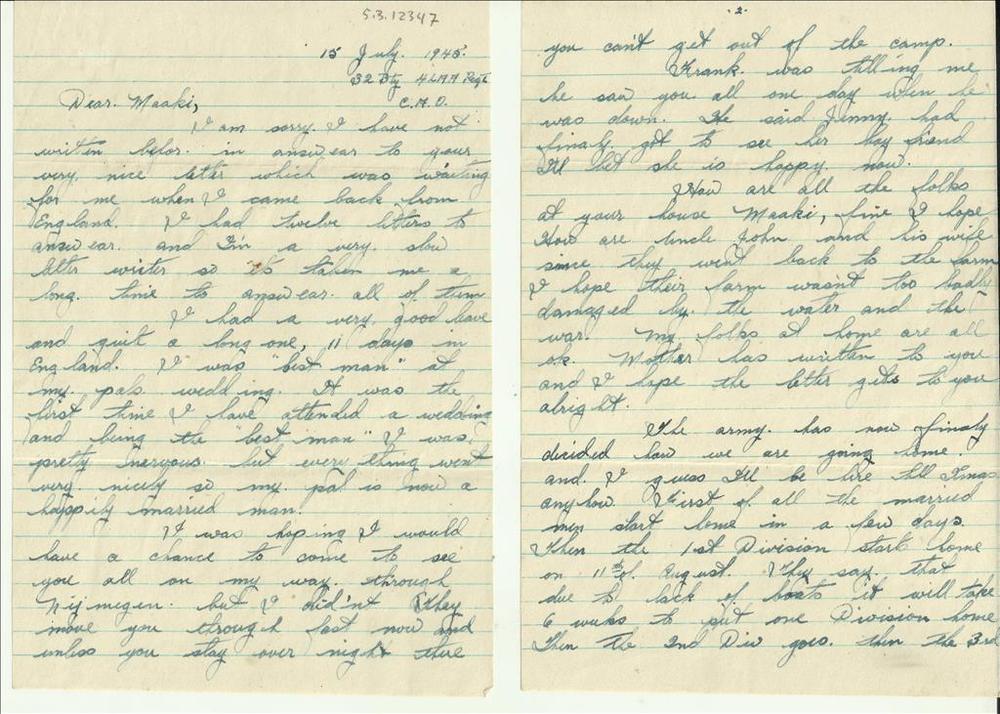 5.3.12347
15 July. 1945.
32 Bty 4 LAA Regt
C.A.O.
Dear. Maaki,
I am sorry. I have not
writen befor. in answear to your
very. nice letter which was waiting
for me when I came back from
England. I had twelve letters to
answear. and I'm a very. slow
letter writer so it's taken me a
long. time to answear. all of them
I had a very. good leave
and quit a long one, 11 days in
England. I was "best man" at
my. pals wedding. It was the
first time I have attended a wedding
and being the "best man" I was.
pretty nervous. but every thing went
very. nicely so my. pal is now a
happily married man.
I was hoping I would
have a chance to come to see
you all on my way. through
Nijmegen. but I did'nt they
move you through fast now and
unless you stay over night there
.2.
you can't get out of the camp.
Frank. was telling me
he saw you all one day when he
was down. He said Jenny. had
finaly. got to see her boy friend
I'll bet she is happy now.
How are all the folks
at your house Maaki, fine I hope
How are Uncle John and his wife
since they went back to the farm
I hope their farm wasn't too badly
damaged by. the water and the
war. My folks at home are all
ok. Mother has written to you
and I hope the letter gets to you
alright.
The army. has now finaly
decided how we are going home.
and. I guess I'll be here till Xmas
anyhow. First of. all the married
men start home in a few days.
Then the 1st Division start home
on 11th of. August. They say. that
due to lack of boats it will take
6 weeks to put one Division home
Then the 2nd Div goes. then the 3rd